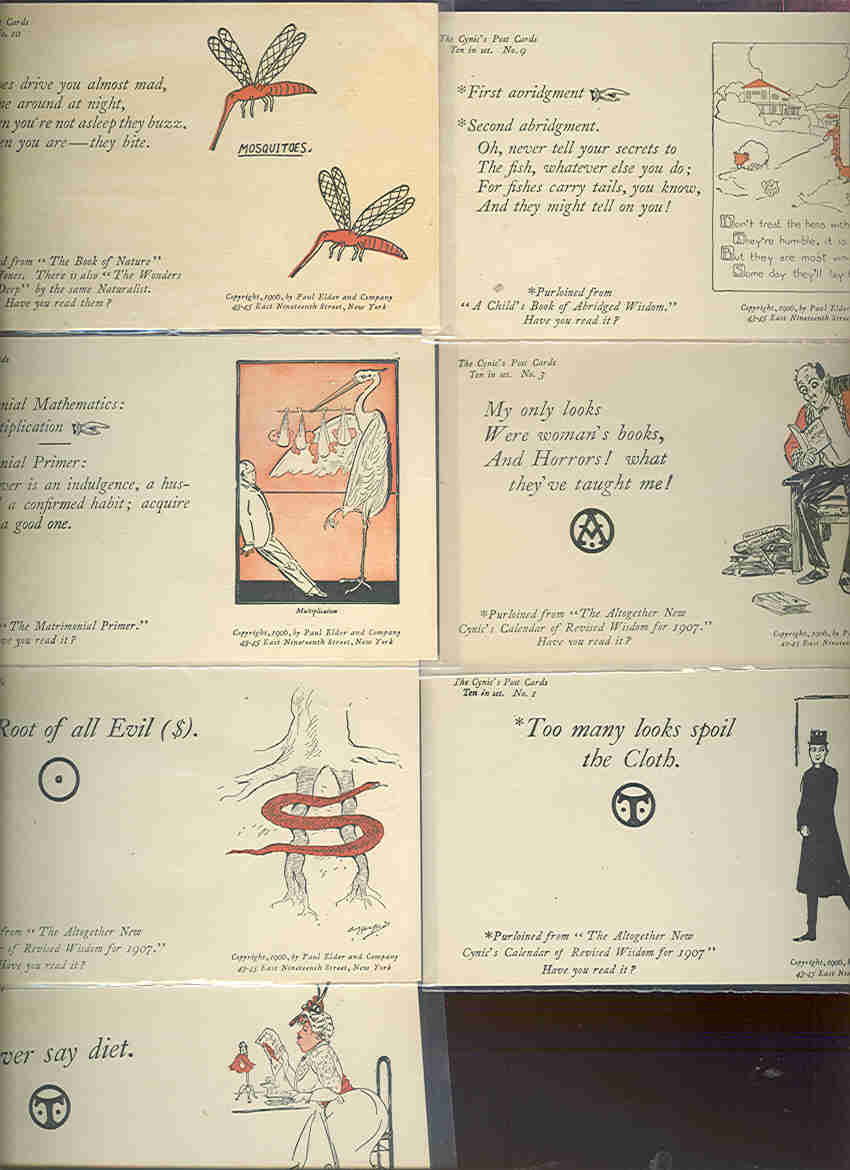 Cards
No. 10
drive you almost mad,
around at night,
you're not asleep they buzz.
you are—they bite.
MOSQUITOES.
from "The Book of Nature"
Jones. There is also "The Wonders
Deep" by the same Naturalist.
Have you read them?
Copyright, 1906, by Paul Elder and Company
43-45 East Nineteenth Street, New York
The Cynic's Post Cards
Ten in set. No. 9
*First abridgment
*Second abridgment.
Oh, never tell your secrets to
The fish, whatever else you do;
For fishes carry tails, you know,
And they might tell on you!
Don't treat the hens with
They're humble, it is
But they are most
Some day they'll lay
*Purloined from
"A Child's Book of Abridged Wisdom."
Have you read it?
Copyright, 1906, by Paul Elder
43-45 East Nineteenth
Mathematics:
Primer:
is an indulgence, a hus-
a confirmed habit; acquire
a good one.
Multiplication
"The Matrimonial Primer."
you read it?
Copyright, 1906, by Paul Elder and Company
43-45 East Nineteenth Street, New York
The Cynic's Post Cards
Ten in set. No. 3
My only looks
Were woman's books,
And Horrors! what
they've taught me!
*Purloined from "The Altogether New
Cynic's Calendar of Revised Wisdom for 1907."
Have you read it?
Copyright, 1906, by
43-45 East
Root of all Evil ($).
from "The Altogether New
of Revised Wisdom for 1907."
Have you read it?
Copyright, 1906, by Paul Elder and Company
43-45 East Nineteenth Street, New York
The Cynic's Post Cards
Ten in set. No. 1
*Too many looks spoil
the Cloth.
*Purloined from "The Altogether New
Cynic's Calendar of Revised Wisdom for 1907"
Have you read it?
Copyright, 1906,
43-45 East
say diet.